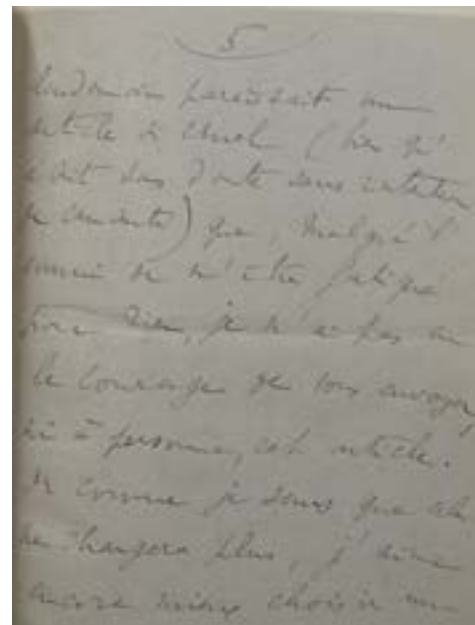 5
paraissait un
article si cruel (bien qu'
sans doute sans intention
) que, malgré l'
ennui de m'être fatigué
pour rien, je n'ai pas eu
le courage de vous envoyer,
ni à personne, cet article.
Et comme je sens que cela
ne changera plus, j'aime
encore mieux choisir un